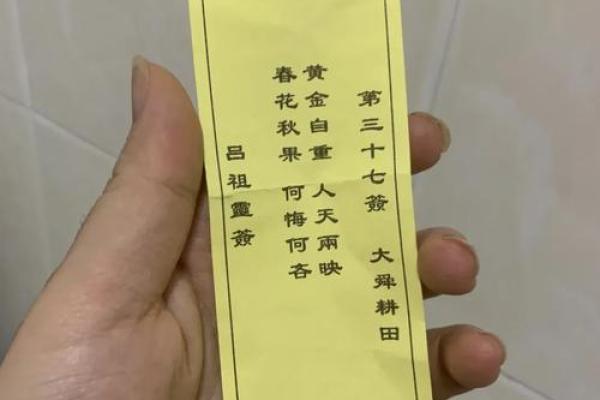 第三十七簽 大舜耕田
黄金自重 人天兩映
春花秋果 何悔何吝
吕祖靈簽